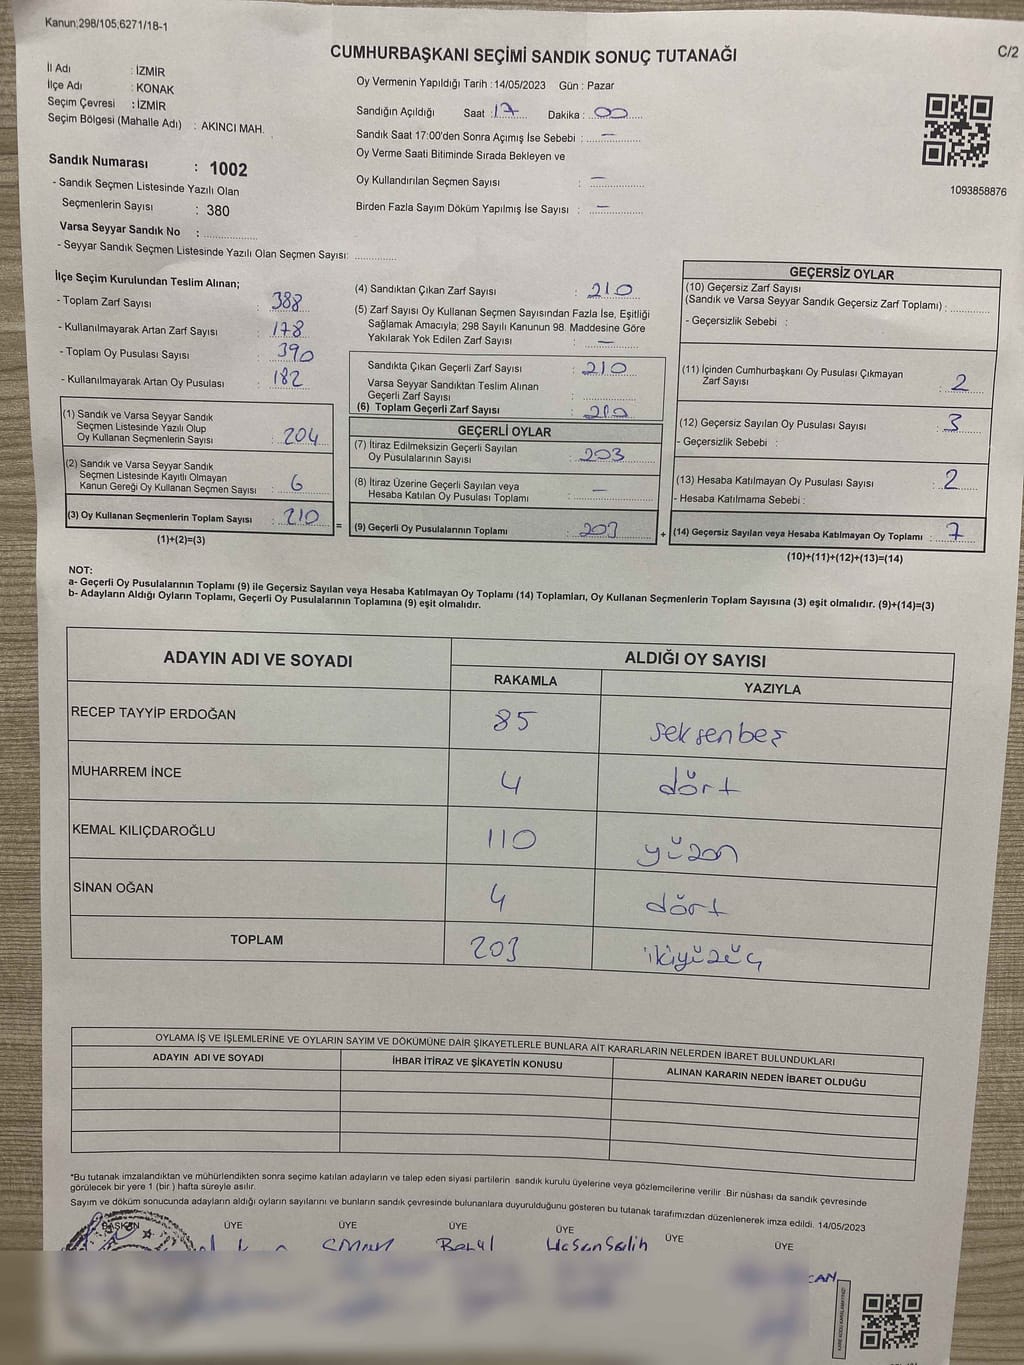 Kanun;298/105,6271/18-1
C/2
CUMHURBAŞKANI SEÇİMİ SANDIK SONUÇ TUTANAĞI
İl Adı : İZMİR
İlçe Adı : KONAK
Seçim Çevresi : İZMİR
Seçim Bölgesi (Mahalle Adı) : AKINCI MAH.
Sandık Numarası : 1002
- Sandık Seçmen Listesinde Yazılı Olan
Seçmenlerin Sayısı : 380
Varsa Seyyar Sandık No :
- Seyyar Sandık Seçmen Listesinde Yazılı Olan Seçmen Sayısı:
Oy Vermenin Yapıldığı Tarih : 14/05/2023 Gün : Pazar
Sandığın Açıldığı Saat : 17 Dakika : 00
Sandık Saat 17:00'den Sonra Açımış İse Sebebi : —
Oy Verme Saati Bitiminde Sırada Bekleyen ve
Oy Kullandırılan Seçmen Sayısı : —
Birden Fazla Sayım Döküm Yapılmış İse Sayısı : —
1093858876
İlçe Seçim Kurulundan Teslim Alınan;
- Toplam Zarf Sayısı : 388
- Kullanılmayarak Artan Zarf Sayısı : 178
- Toplam Oy Pusulası Sayısı : 390
- Kullanılmayarak Artan Oy Pusulası : 182
(1) Sandık ve Varsa Seyyar Sandık
Seçmen Listesinde Yazılı Olup
Oy Kullanan Seçmenlerin Sayısı : 204
(2) Sandık ve Varsa Seyyar Sandık
Seçmen Listesinde Kayıtlı Olmayan
Kanun Gereği Oy Kullanan Seçmen Sayısı : 6
(3) Oy Kullanan Seçmenlerin Toplam Sayısı : 210
(1)+(2)=(3)
=
(4) Sandıktan Çıkan Zarf Sayısı : 210
(5) Zarf Sayısı Oy Kullanan Seçmen Sayısından Fazla İse, Eşitliği
Sağlamak Amacıyla; 298 Sayılı Kanunun 98. Maddesine Göre
Yakılarak Yok Edilen Zarf Sayısı : —
Sandıkta Çıkan Geçerli Zarf Sayısı : 210
Varsa Seyyar Sandıktan Teslim Alınan
Geçerli Zarf Sayısı :
(6) Toplam Geçerli Zarf Sayısı : 210
GEÇERLİ OYLAR
(7) İtiraz Edilmeksizin Geçerli Sayılan
Oy Pusulalarının Sayısı : 203
(8) İtiraz Üzerine Geçerli Sayılan veya
Hesaba Katılan Oy Pusulası Toplamı : —
(9) Geçerli Oy Pusulalarının Toplamı : 203
+
GEÇERSİZ OYLAR
(10) Geçersiz Zarf Sayısı
(Sandık ve Varsa Seyyar Sandık Geçersiz Zarf Toplamı) :
- Geçersizlik Sebebi :
(11) İçinden Cumhurbaşkanı Oy Pusulası Çıkmayan
Zarf Sayısı : 2
(12) Geçersiz Sayılan Oy Pusulası Sayısı : 3
- Geçersizlik Sebebi :
(13) Hesaba Katılmayan Oy Pusulası Sayısı : 2
- Hesaba Katılmama Sebebi :
(14) Geçersiz Sayılan veya Hesaba Katılmayan Oy Toplamı : 7
(10)+(11)+(12)+(13)=(14)
NOT:
a- Geçerli Oy Pusulalarının Toplamı (9) ile Geçersiz Sayılan veya Hesaba Katılmayan Oy Toplamı (14) Toplamları, Oy Kullanan Seçmenlerin Toplam Sayısına (3) eşit olmalıdır. (9)+(14)=(3)
b- Adayların Aldığı Oyların Toplamı, Geçerli Oy Pusulalarının Toplamına (9) eşit olmalıdır.
ADAYIN ADI VE SOYADI
ALDIĞI OY SAYISI
RAKAMLA YAZIYLA
RECEP TAYYİP ERDOĞAN 85 seksenbeş
MUHARREM İNCE 4 dört
KEMAL KILIÇDAROĞLU 110 yüzon
SİNAN OĞAN 4 dört
TOPLAM 203 ikiyüzüç
OYLAMA İŞ VE İŞLEMLERİNE VE OYLARIN SAYIM VE DÖKÜMÜNE DAİR ŞİKAYETLERLE BUNLARA AİT KARARLARIN NELERDEN İBARET BULUNDUKLARI
ADAYIN ADI VE SOYADI İHBAR İTİRAZ VE ŞİKAYETİN KONUSU ALINAN KARARIN NEDEN İBARET OLDUĞU
*Bu tutanak imzalandıktan ve mühürlendikten sonra seçime katılan adayların ve talep eden siyasi partilerin sandık kurulu üyelerine veya gözlemcilerine verilir. Bir nüshası da sandık çevresinde
görülecek bir yere 1 (bir ) hafta süreyle asılır.
Sayım ve döküm sonucunda adayların aldığı oyların sayılarını ve bunların sandık çevresinde bulunanlara duyurulduğunu gösteren bu tutanak tarafımızdan düzenlenerek imza edildi. 14/05/2023
BAŞKAN ÜYE ÜYE ÜYE ÜYE ÜYE ÜYE
Hasan Salih